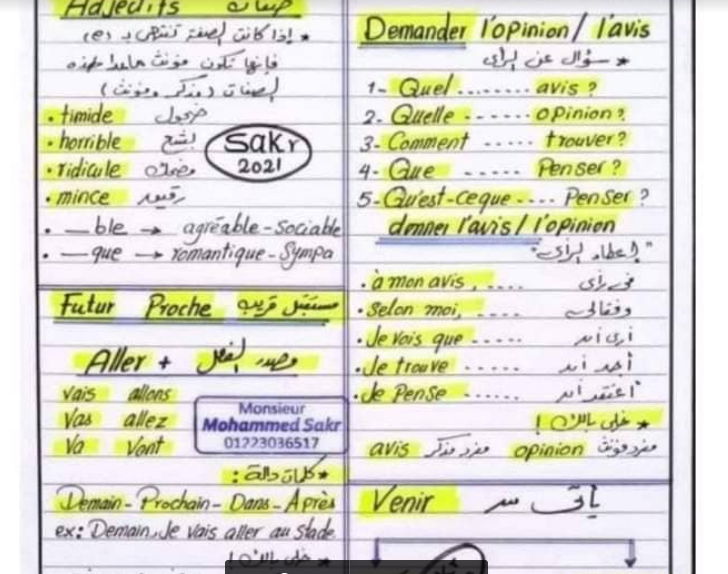 Adjectifs صفات
* إذا كانت الصفة تنتهى بـ (e)
فإنها تكون مؤنث
الصفات (مذكر ومؤنث)
• timide خجول
• horrible بشع
• ridicule مضحك
• mince رقيع
Sakr
2021
• — ble → agréable - Sociable
• — que → romantique - Sympa
Futur Proche مستقبل قريب
Aller + مصدر الفعل
vais allons
Vas allez
Va Vont
Monsieur
Mohammed Sakr
01223036517
* كلمات دالة :
Demain - Prochain - Dans - Après
ex: Demain, Je vais aller au Stade
* خلى بالك !
Demander l'opinion / l'avis
* سؤال عن الرأى
1- Quel ........ avis ?
2- Quelle ------ opinion ?
3- Comment ------ trouver ?
4- Que ------ Penser ?
5- Qu'est-ceque .... Penser ?
donner l'avis / l'opinion
"إعطاء الرأى"
• à mon avis, .... فى رأى
• Selon moi, .... وفقا لى
• Je vois que ..... أرى أن
• Je trouve ...... أجد أن
• Je Pense ...... أعتقد أن
* خلى بالك !
avis مفرد مذكر opinion مفرد مؤنث
Venir يأتى